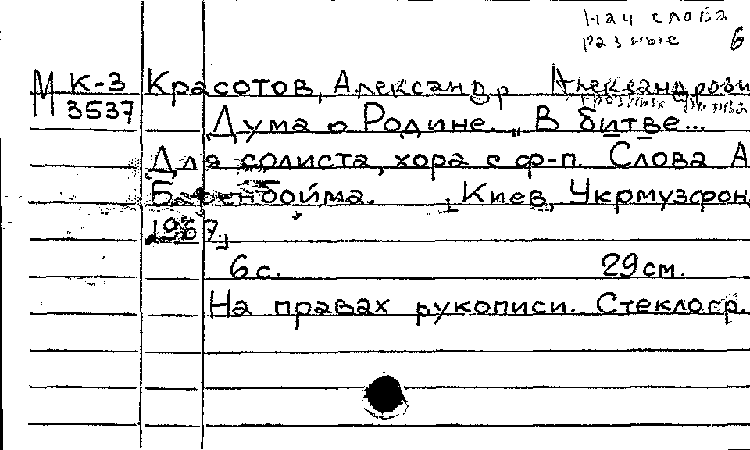 нач слова
разные 6
М К-3 Красотов, Александр Александрови
3537 Дума о Родине. „В битве...
Для солиста, хора с ф-п. Слова А
Баренбойма. [Киев, Укрмузфон
1967]
6 с. 29 см.
На правах рукописи. Стеклогр.